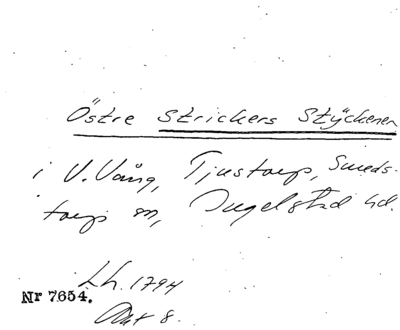 Östre Strickers Stÿckenen
i V. Vång, Tjustorp, Smeds-
torps sn, Ingelstad hd.
Lh. 1794
Nr 7654.
Akt 8.